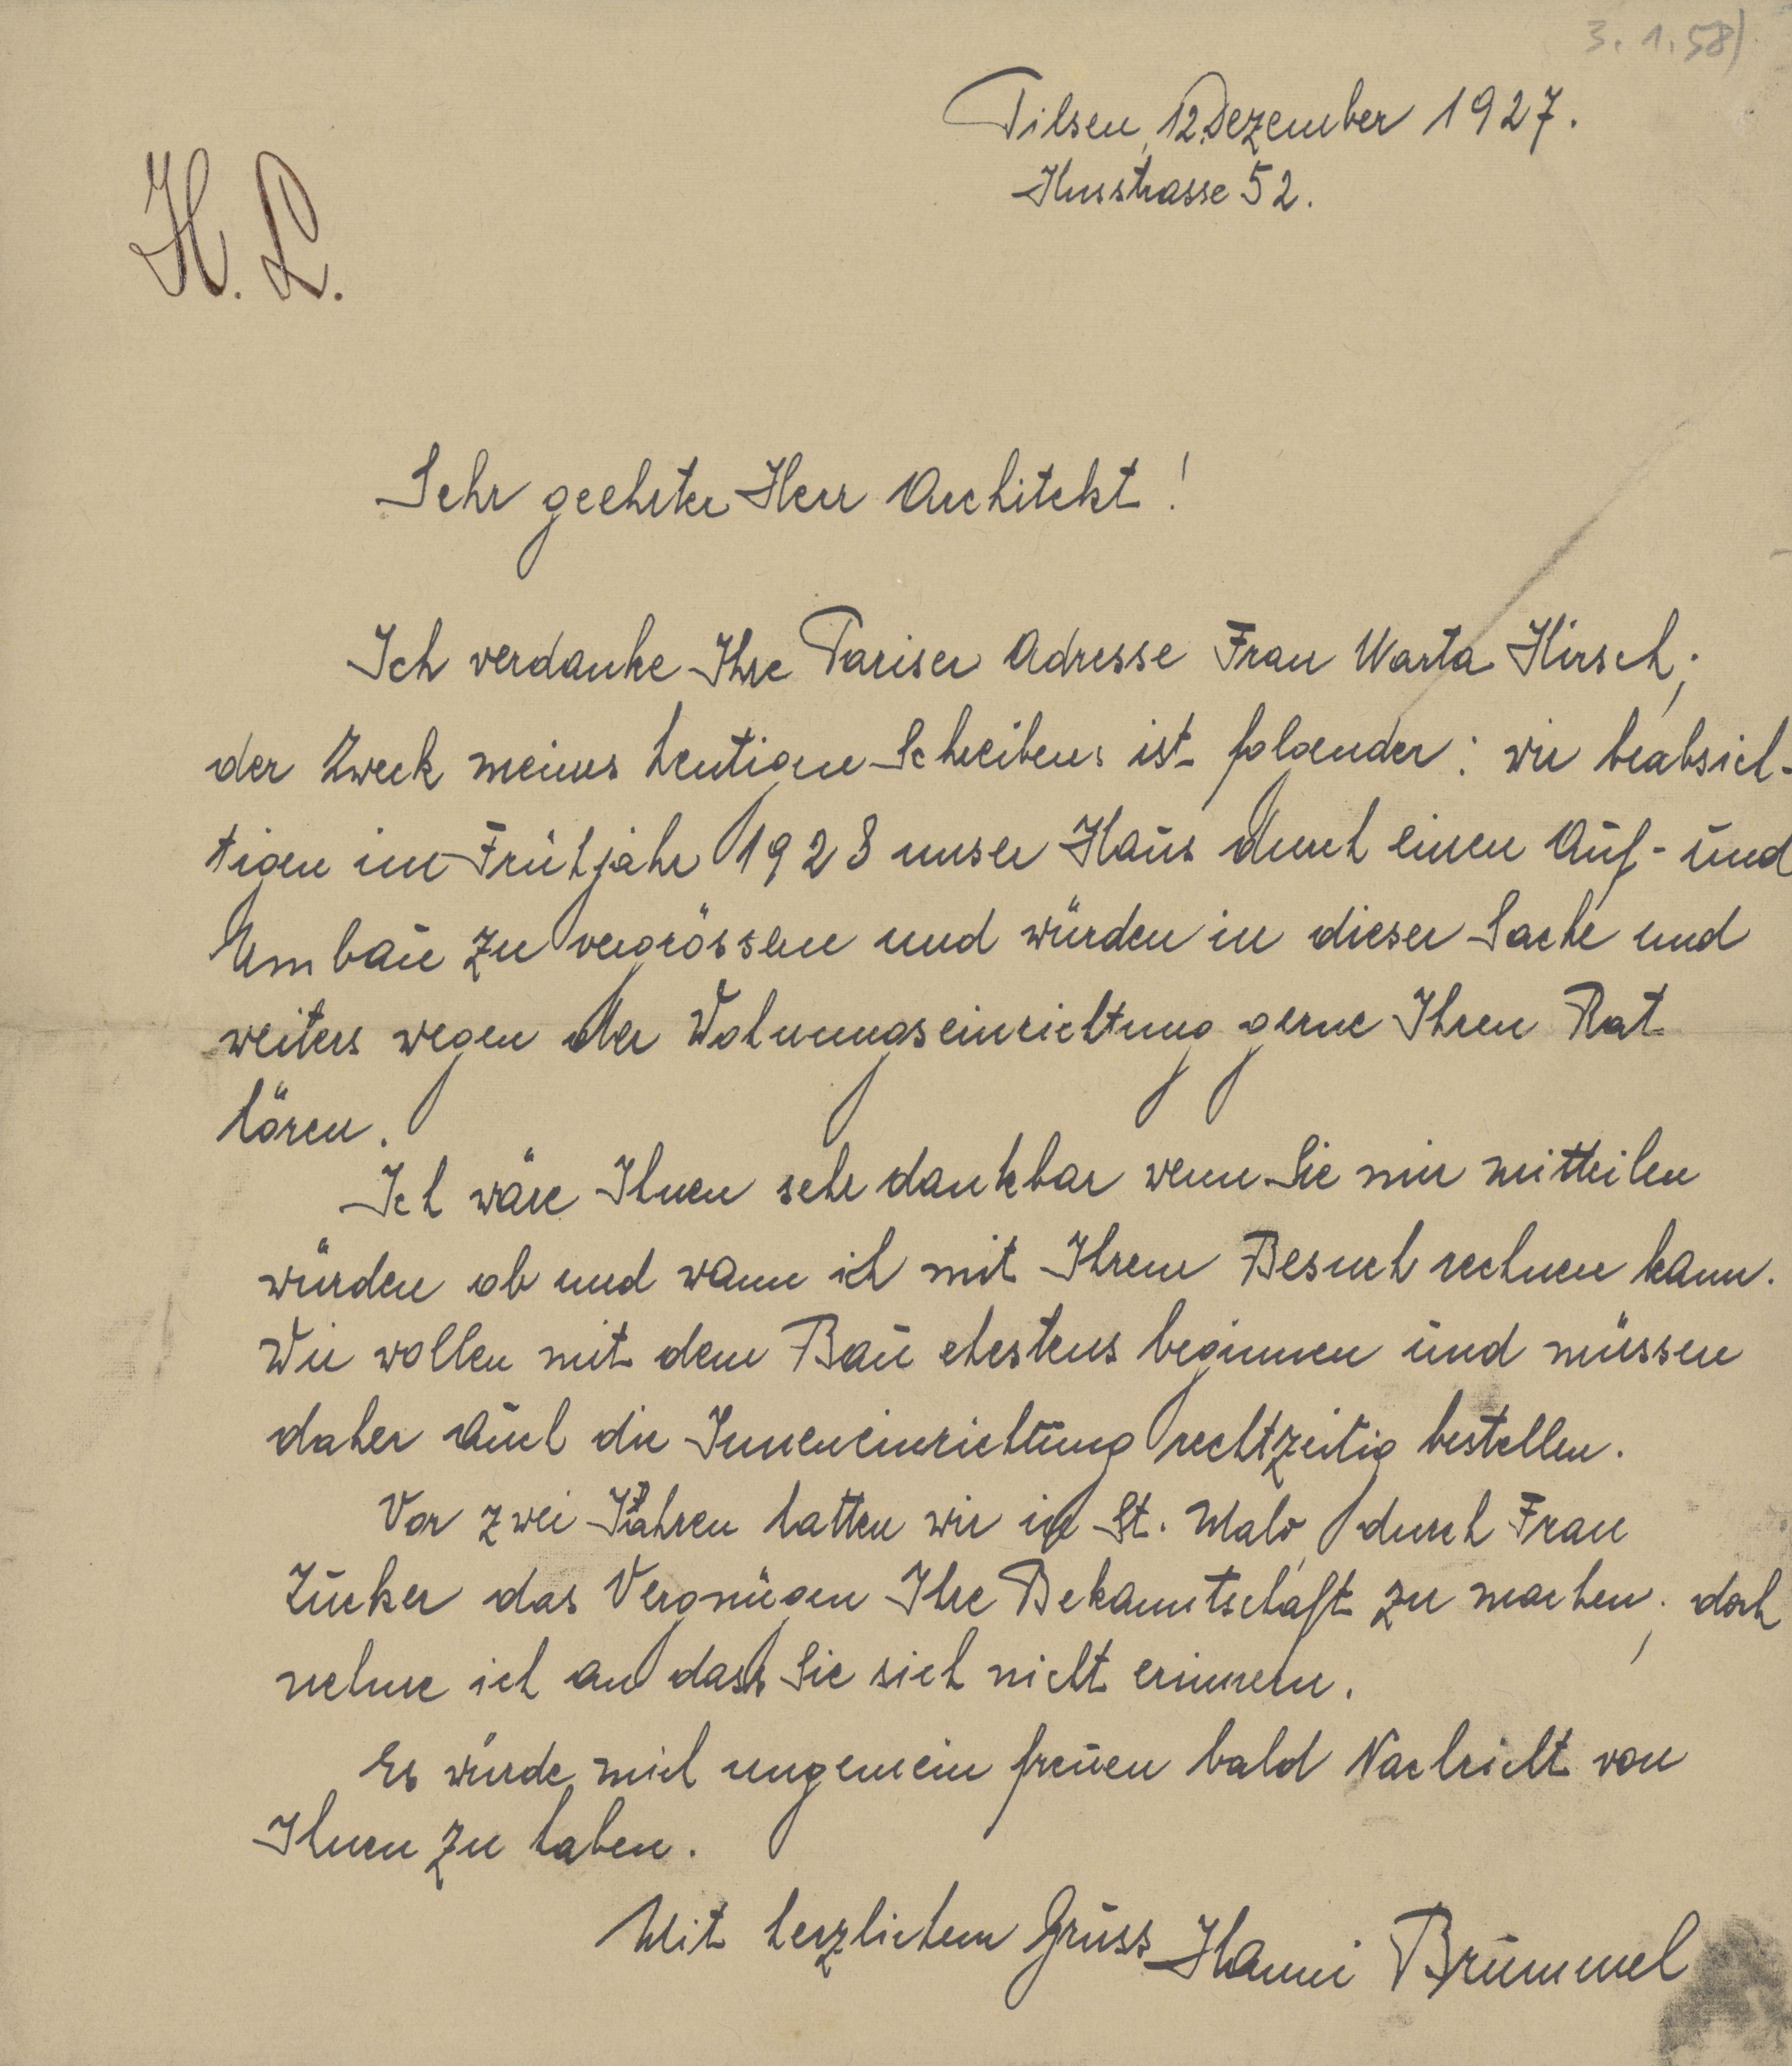 3.1.58)
Pilsen, 12 Dezember 1927.
Husstrasse 52.
H. L.
Sehr geehrter Herr Architekt!
Ich verdanke Ihre Pariser Adresse Frau Marta Hirsch;
der Zweck meines heutigen Schreibens ist folgender: wir beabsich-
tigen im Frühjahr 1928 unser Haus durch einen Auf- und
Umbau zu vergrössern und würden in dieser Sache und
weiters wegen der Wohnungseinrichtung gerne Ihren Rat
hören.
Ich wäre Ihnen sehr dankbar wenn Sie mir mitteilen
würden ob und wann ich mit Ihrem Besuch rechnen kann.
Wir wollen mit dem Bau ehestens beginnen und müssen
daher auch die Inneneinrichtung rechtzeitig bestellen.
Vor zwei Jahren hatten wir in St. Malo, durch Frau
Zucker das Vergnügen Ihre Bekanntschaft zu machen; doch
nehme ich an dass Sie sich nicht erinnern.
Es würde mich ungemein freuen bald Nachricht von
Ihnen zu haben.
Mit herzlichem Gruss Hanni Brummel